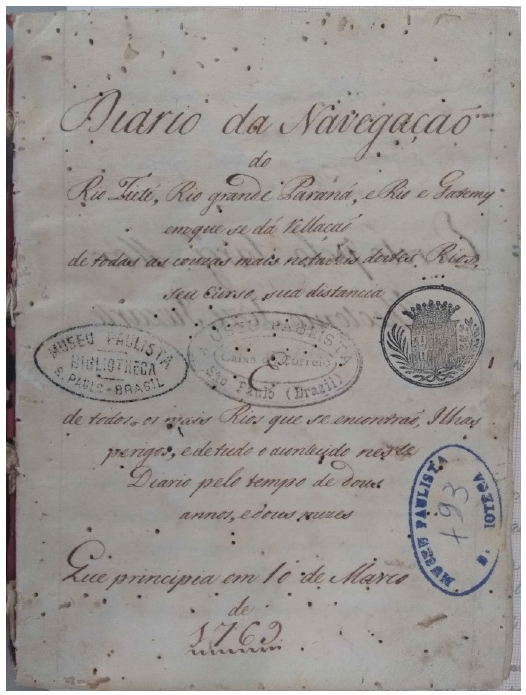 Diario da Navegaçaõ
do
Rio Tieté, Rio grande Paraná, e Rio e Gatemy
em que se dá Rellaçaõ
de todas as couzas mais notaveis destes Rios,
seu curso, sua distancia
MUSEU PAULISTA
BIBLIOTHECA
S. PAULO - BRASIL
MUSEU PAULISTA
Caixa do Correio
São Paulo (Brazil)
E
de todos os mais Rios que se encontraõ, Ilhas
perigos, e de tudo o acontecido neste
Diario pelo tempo de dous
annos, e dous mezes
MUSEU PAULISTA
493
BIBLIOTECA
Que principia em 10 de Março
de
1769